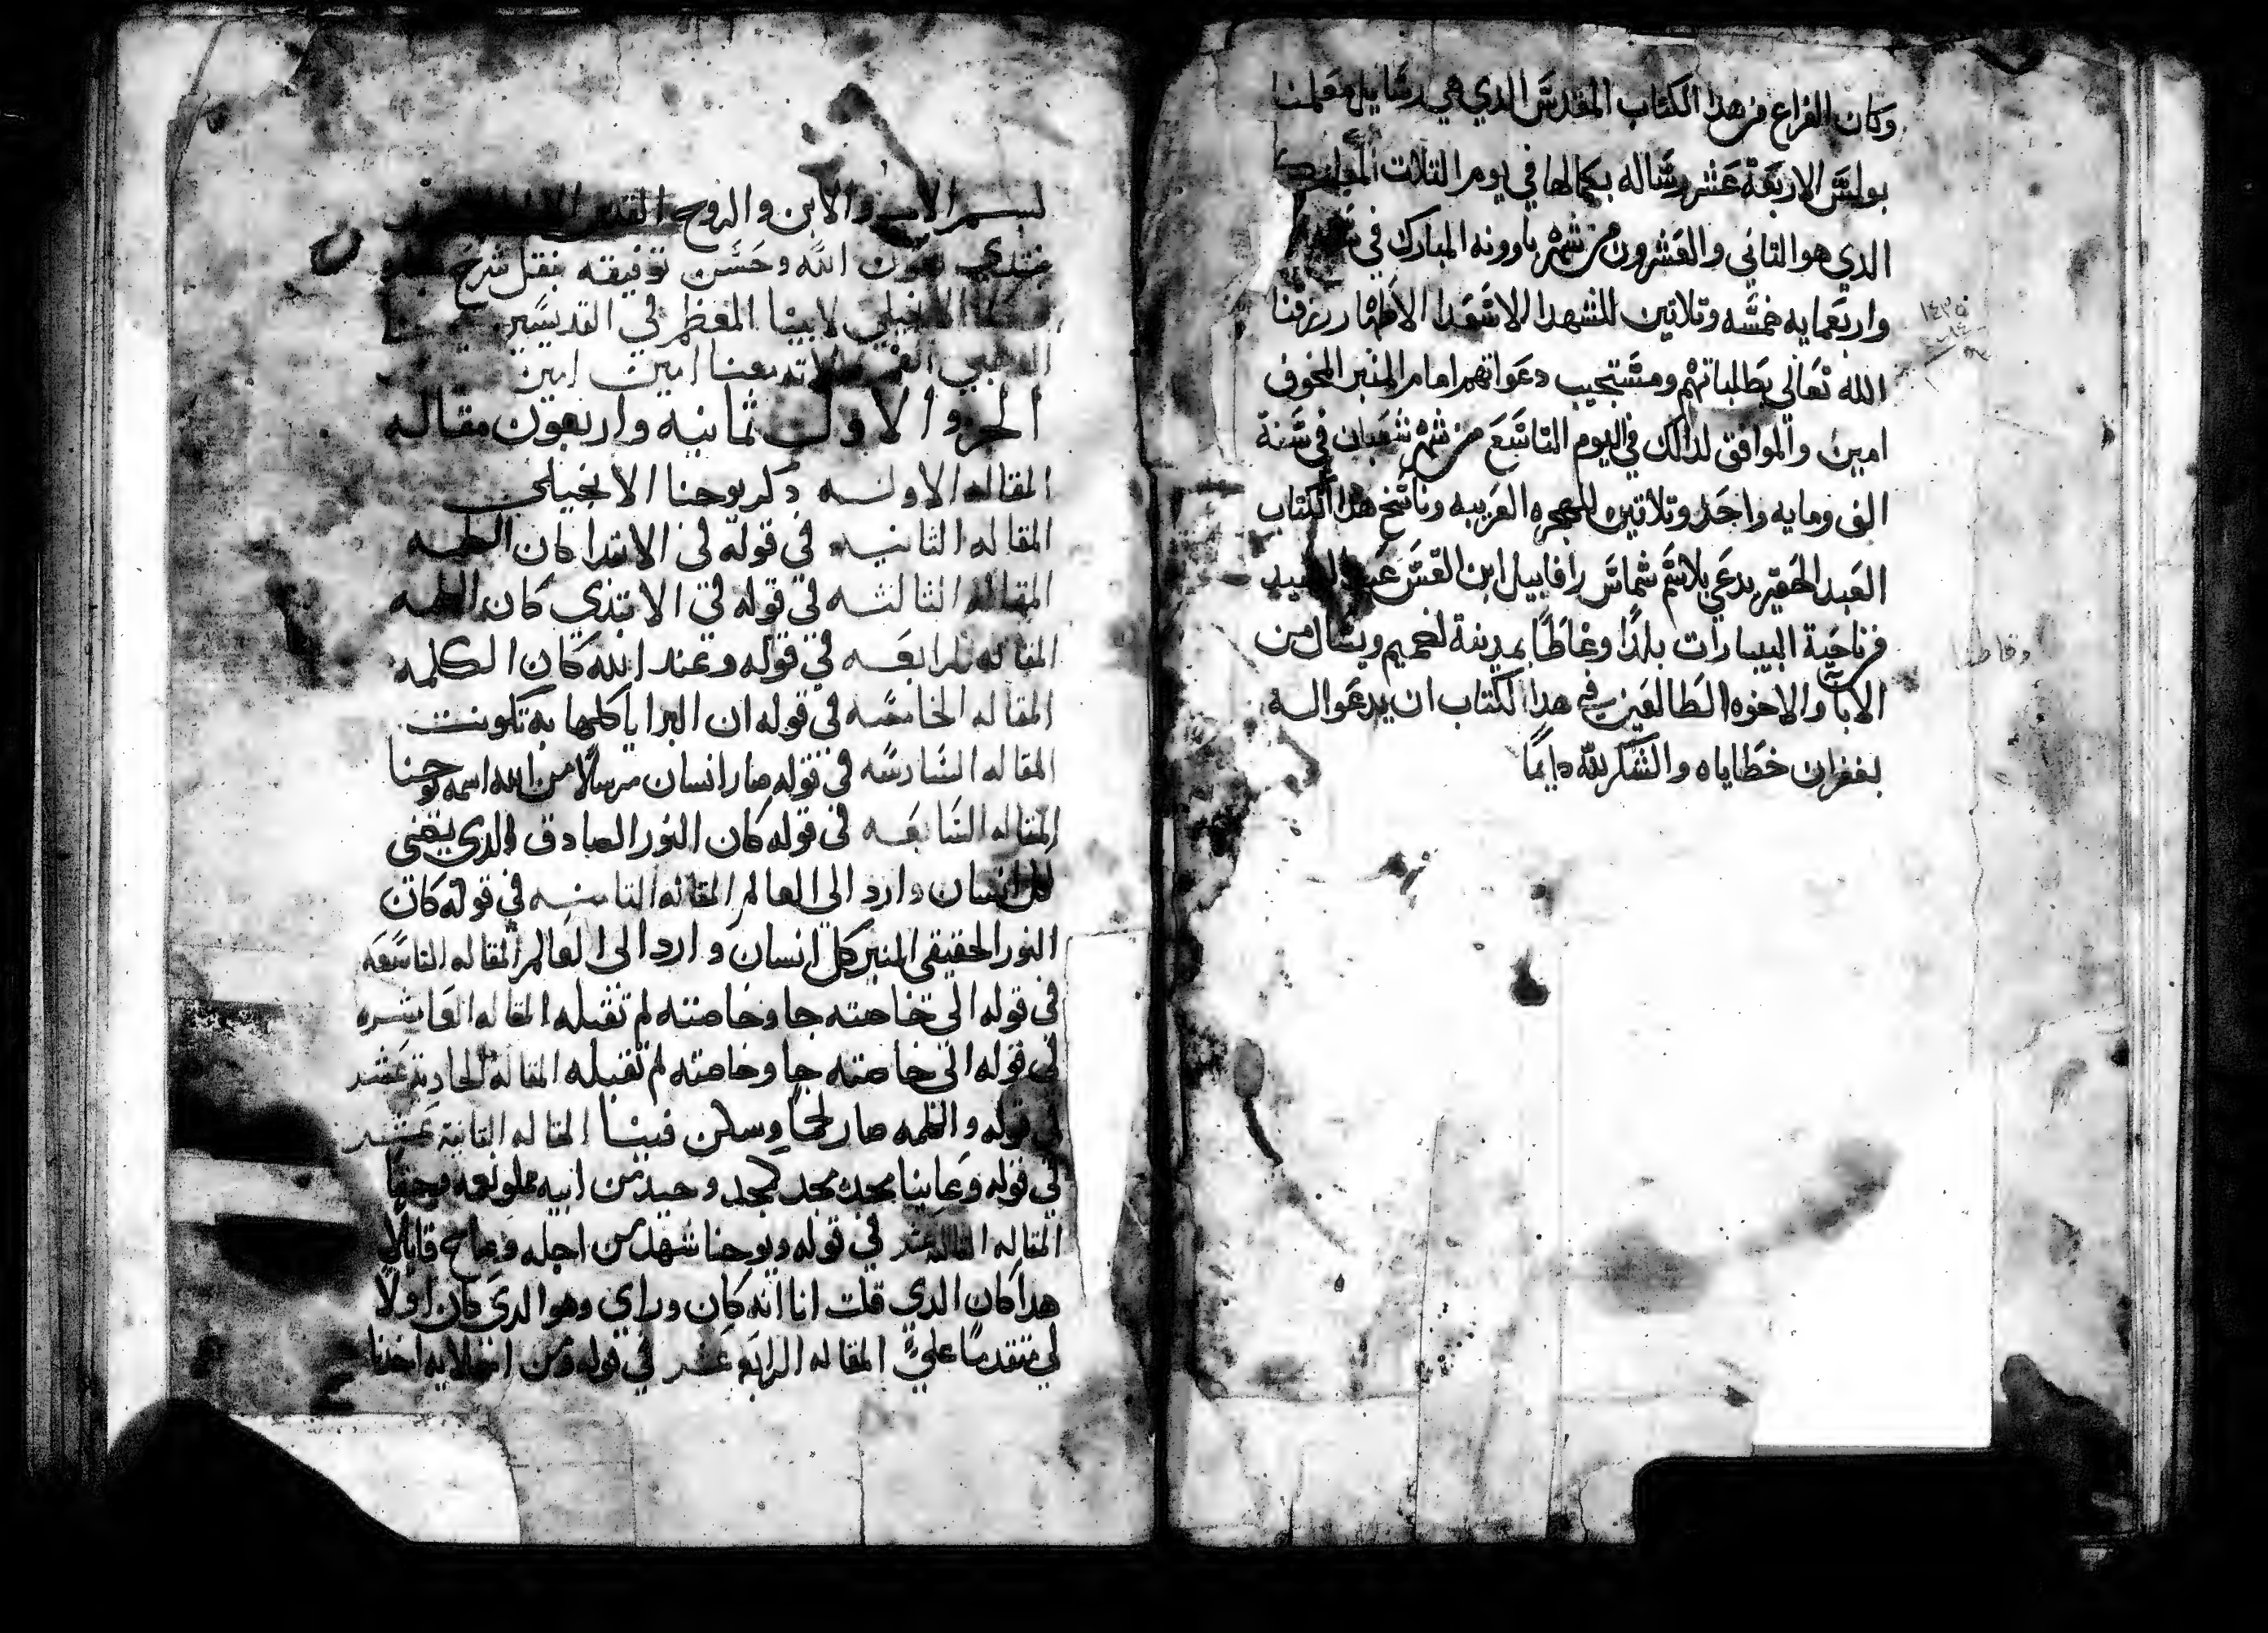 وكان الفراغ من هدا الكتاب المقدس الدي هي رسايل معلمنا
بولس الاربعة عشر رساله بكمالها في يوم التلات المبارك
الدي هو التاني والعشرون من شهر باوونه المبارك في
واربعمايه خمسه وتلاتين للشهدا الاسعدا الاطهار رزقنا
الله تعالى بطلباتهم ومستجيب دعواتهم امام المنبر المخوف
امين والموافق لدالك في اليوم التاسع من شهر شعبان في سنة
الف ومايه واحد وتلاتين للهجره العربيه وناسخ هدا الكتاب
العبد الحقير يدعي بلاسم شماس رافاييل ابن القس عبد
من ناحية البيبارات بلدا وغاطا بمدينة اخميم ويسال من
الابآ والاخوه الطالعين في هدا الكتاب ان يدعوا له
بغفران خطاياه والشكر لله دايمًا
١٤٣٥
بسم الاب والابن والروح القدس الاله
نبتدي بعون الله وحسن توفيقه بنقل شرح
الانجيلي لابينا المعظم في القديسين
الدهبي الفم صلاته معنا امين امين
الجزو الاول ثمانيه واربعون مقاله
المقاله الاوله دكر يوحنا الانجيلي
المقاله التانيه في قوله في الابتدا كان الكلمه
المقاله الثالثه في قوله في الابتدي كان الكلمه
المقاله الرابعه في قوله وعند الله كان الكلمه
المقاله الخامسه في قوله ان البرايا كلها به تكونت
المقاله السادسه في قوله صار انسان مرسلًا من الله اسمه يوحنا
المقاله السابعه في قوله كان النور الصادق الدي يضي
لكل انسان وارد الي العالم المقاله التامنه في قوله كان
النور الحقيقي المنير كل انسان وارد الى العالم المقاله التاسعه
في قوله الى خاصته جا وخاصته لم تقبله المقاله العاشره
في قوله الى خاصته جا وخاصته لم تقبله المقاله الحادية عشر
في قوله والكلمه صار لحمًا وسكن فينا المقاله التانية عشر
في قوله وعاينا مجده مجد كمجد وحيد من ابيه مملو نعمه وحقًا
المقاله التالته عشر في قوله ويوحنا شهد من اجله وصاح قايلًا
هدا كان الدي قلت انا انه كان وراي وهو الدي كان اولًا
لي متقدمًا عليّ المقاله الرابعه عشر في قوله ومن امتلايه اخدنا